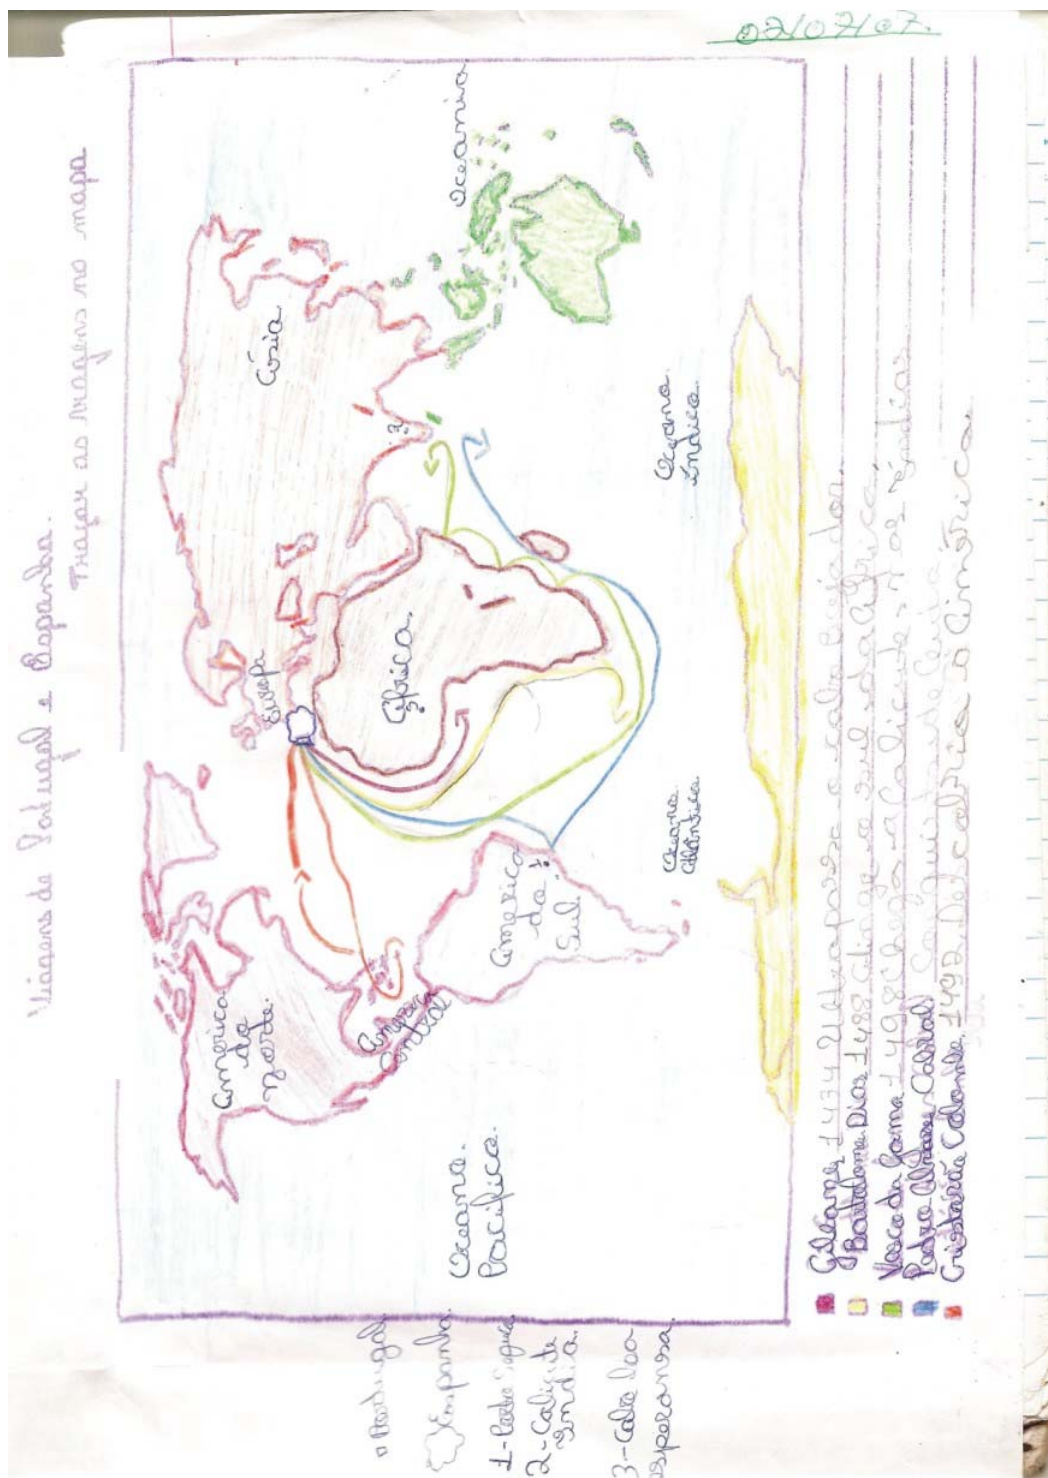 02/07/07.
Viagens de Portugal e Espanha.
Traçar as viagens no mapa
América
do
norte.
América
Central
América
do
Sul
1.
Europa
África.
3
Ásia
2
Oceania
Oceano.
Pacífica.
Oceano.
Atlântica.
Oceano.
índica.
Portugal
Espanha
1-Porto Segura
2-Calicute
índia.
3-Cabo boa
esperansa
Gileanes 1434 Ultrapassa o cabo bojador.
Bartolomeu Dias 1488 Atinge o sul da África.
Vasco da Gama 1498 Chega a Calicute, nas índias
Pedro Alvares Cabral Conquista de Ceuta
Cristóvão Colombo. 1492 Descobria a América.